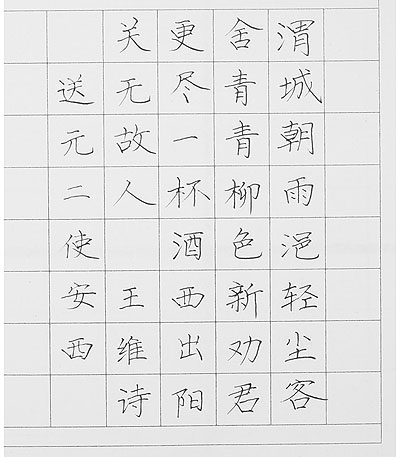 渭城朝雨浥轻尘客
舍青青柳色新劝君
更尽一杯酒西出阳
关无故人 王维诗
送元二使安西